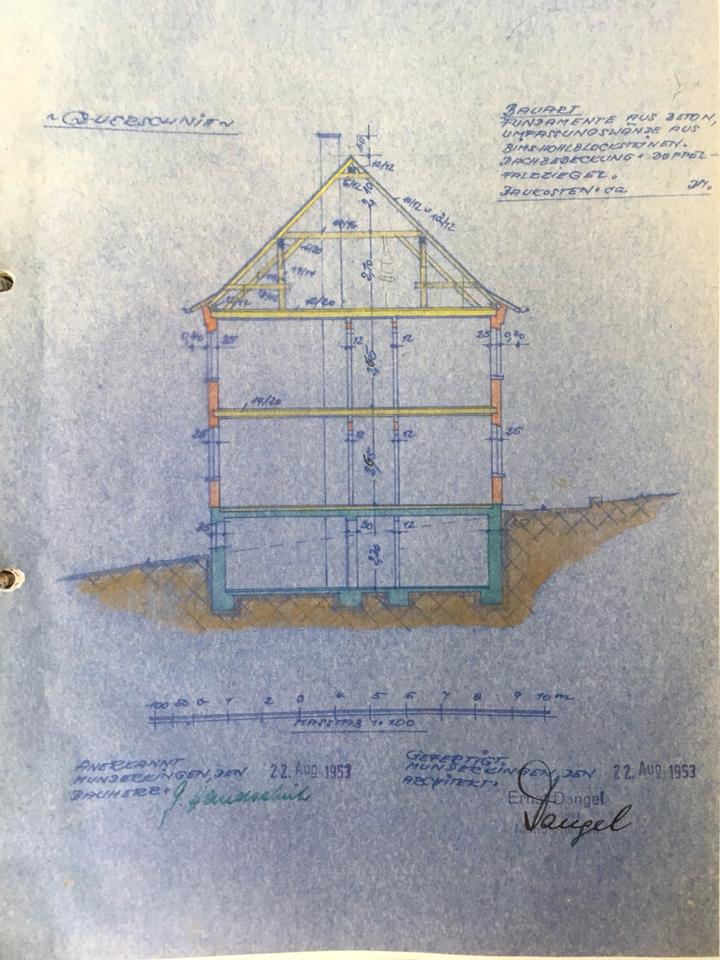 ~QUERSCHNITT~
BAUART
FUNDAMENTE AUS BETON,
UMFASSUNGSWÄNDE AUS
BIMSHOHLBLOCKSTEINEN.
DACHBEDECKUNG: DOPPEL-
FALZZIEGEL.
BAUKOSTEN: CA DM.
12/12
10/12
2,10
12/20
0,40 25 12 12 25 0,40
2,65
14/20
25 12 12 25
2,65
25 30 12
2,20
100 50 0 1 2 3 4 5 6 7 8 9 10 m
MASSTAB 1:100
ANERKANNT
MUNDERKINGEN, DEN 22. Aug. 1953
BAUHERR:
GEFERTIGT:
MUNDERKINGEN, DEN 22. Aug. 1953
ARCHITEKT:
Ernst Dangel
Dangel